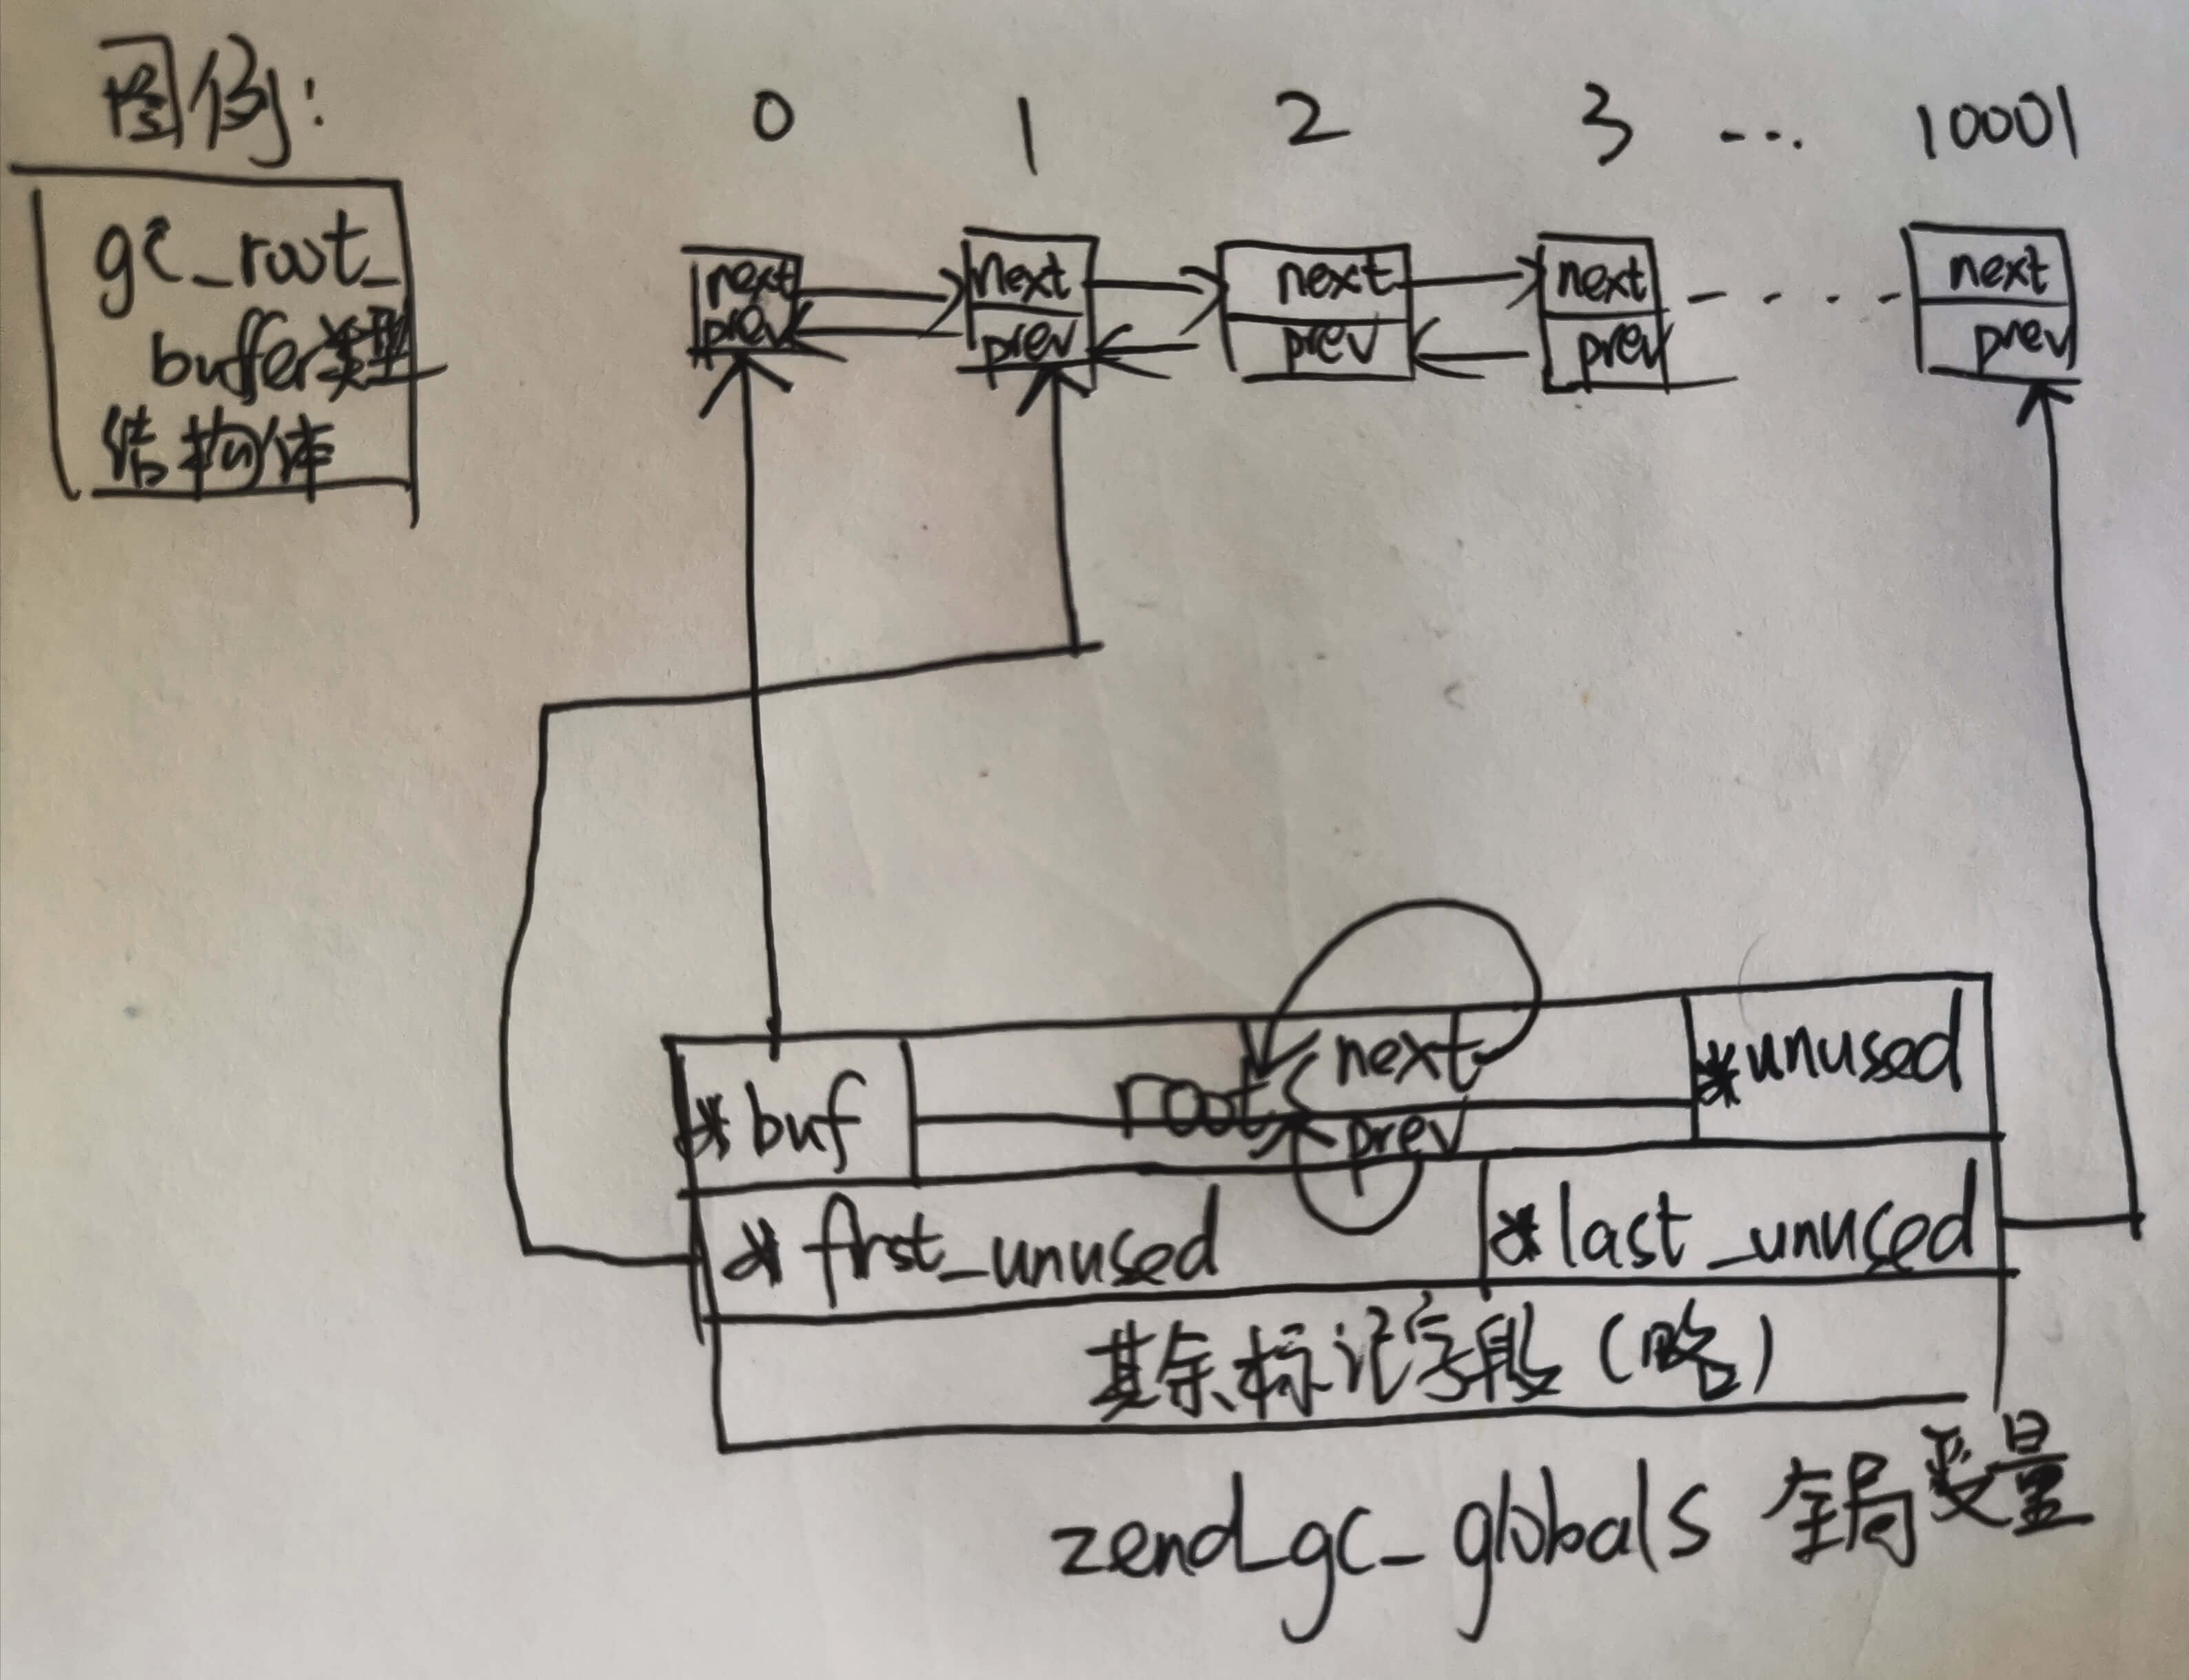 图例:
gc_root_
buffer类型
结构体
0 1 2 3 ... 10001
next next next next next
prev prev prev prev prev
*buf root next *unused
prev
*first_unused *last_unused
其余标记字段(略)
zend_gc_globals 全局变量